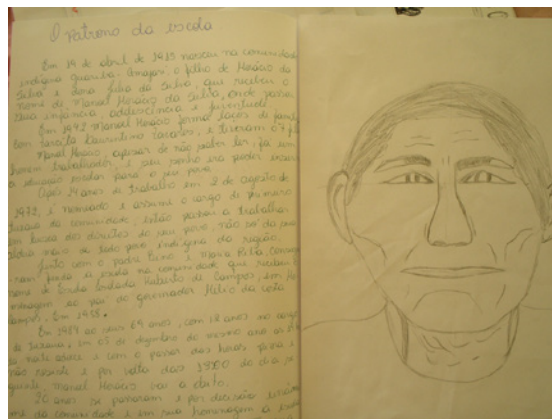 O Patrono da escola
Em 19 de abril de 1913 nasceu na comunidade
indígena Guariba-Amajari, o filho de Horácio da
Silva e dona Júlia da Silva, que recebeu o
nome de Manoel Horácio da Silva, onde passou
sua infância, adolescência e juventude.
Em 1942 Manoel Horácio formal laços de família
com Tarcila Laurentino Tavares, e tiveram 07 fil
Manoel Horácio, apesar de não poder ler, foi um
homem trabalhador, e seu sonho era poder
a educação escolar para o seu povo.
Após 14 anos de trabalho em 2 de agosto de
1972, é nomeado e assumi o cargo de primeiro
da comunidade, então passou a trabalhar
em busca dos direitos do seu povo, não só da
mais de todo povo indígena da região.
Junto com o padre e Maria
para a escola na comunidade que recebeu
nome de Escola Roberto de Campos, em
ao pai do governador Hélio da Costa
Campos. Em 1958.
Em 1984 ao seus 69 anos, com 12 anos no cargo
de tuxaua, em 05 de dezembro do mesmo ano as
da noite adoece e com o passar das horas
não resiste e por volta das do dia
Manoel Horácio vai a óbito.
20 anos se passaram e por decisão
da comunidade e em sua homenagem a